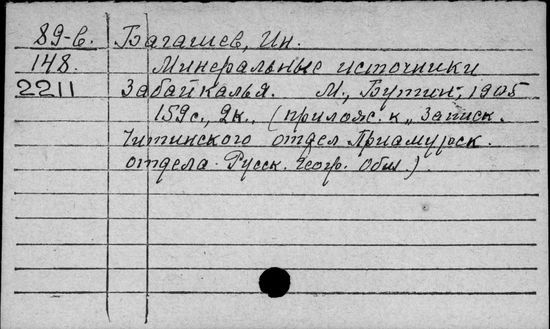 89-в. Багашев, Ин.
148. Минеральные источники
2211 Забайкалья. М., Бутин, 1905
159 с., 2к., (прилож. к „Записк.
Читинского отдел. Приамурск.
отдела. Русск. Геогр. Общ.).